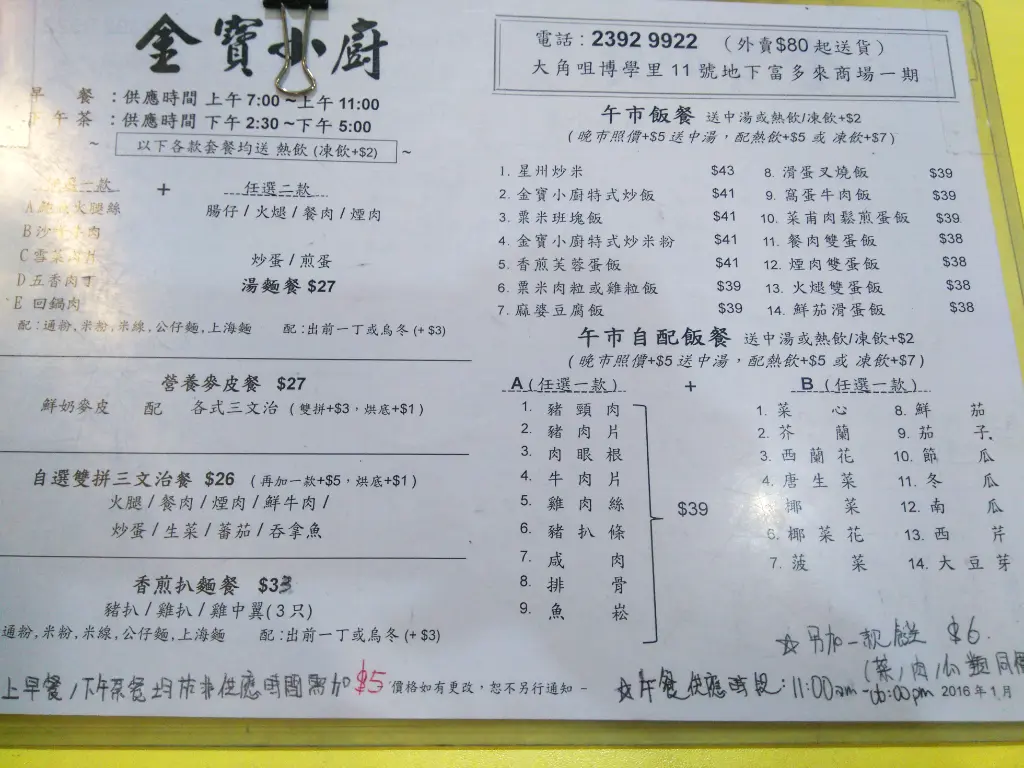 金寶小廚
早 餐 ：供應時間 上午 7:00 ~上午 11:00
下午茶 ：供應時間 下午 2:30 ~下午 5:00
~ 以下各款套餐均送 熱飲 (凍飲+$2) ~
一款 + 任選二款
A 火腿絲
B 沙 肉
C 雪菜 片
D 五香肉丁
E 回鍋肉
腸仔 / 火腿 / 餐肉 / 煙肉
炒蛋 / 煎蛋
湯麵餐 $27
配：通粉, 米粉, 米線, 公仔麵, 上海麵 配：出前一丁或烏冬 (+ $3)
營養麥皮餐 $27
鮮奶麥皮 配 各式三文治 (雙拼+$3，烘底+$1)
自選雙拼三文治餐 $26 (再加一款+$5，烘底+$1)
火腿 / 餐肉 / 煙肉 / 鮮牛肉 /
炒蛋 / 生菜 / 蕃茄 / 吞拿魚
香煎扒麵餐 $33
豬扒 / 雞扒 / 雞中翼(3只)
通粉, 米粉, 米線, 公仔麵, 上海麵 配：出前一丁或烏冬 (+ $3)
上早餐 / 下午茶餐 均於非供應時間需加 $5
價格如有更改，恕不另行通知 –
電話：2392 9922 （外賣$80 起送貨）
大角咀博學里 11 號地下富多來商場一期
午市飯餐 送中湯或熱飲/凍飲+$2
(晚市照價+$5 送中湯，配熱飲+$5 或 凍飲+$7)
1. 星州炒米 $43
2. 金寶小廚特式炒飯 $41
3. 粟米班塊飯 $41
4. 金寶小廚特式炒米粉 $41
5. 香煎芙蓉蛋飯 $41
6. 粟米肉粒或雞粒飯 $39
7. 麻婆豆腐飯 $39
8. 滑蛋叉燒飯 $39
9. 窩蛋牛肉飯 $39
10. 菜甫肉鬆煎蛋飯 $39
11. 餐肉雙蛋飯 $38
12. 煙肉雙蛋飯 $38
13. 火腿雙蛋飯 $38
14. 鮮茄滑蛋飯 $38
午市自配飯餐 送中湯或熱飲/凍飲+$2
(晚市照價+$5 送中湯，配熱飲+$5 或 凍飲+$7)
A (任選一款) + B (任選一款)
1. 豬頸肉
2. 豬肉片
3. 肉眼根
4. 牛肉片
5. 雞肉絲
6. 豬扒條
7. 咸肉
8. 排骨
9. 魚崧
$39
1. 菜心
2. 芥蘭
3. 西蘭花
4. 唐生菜
椰菜
6. 椰菜花
7. 菠菜
8. 鮮茄
9. 茄子
10. 節瓜
11. 冬瓜
12. 南瓜
13. 西芹
14. 大豆芽
☆ 另加一款餸 $6.
(菜/肉/ 類同價
☆ 午餐供應時段：11:00am - :00pm
2016 年 1 月